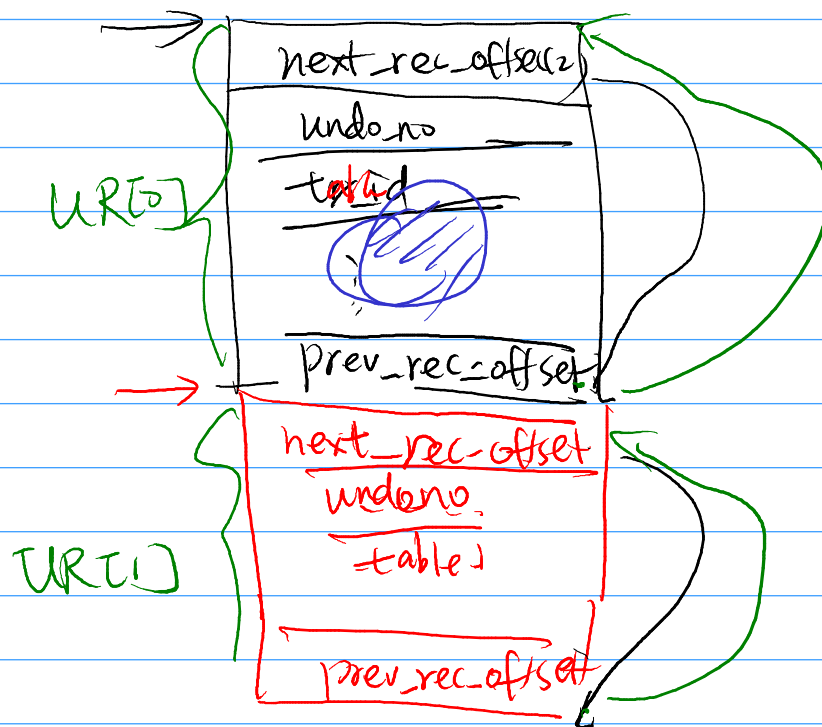 next_rec_offset
undo_no
UR[0]
prev_rec_offset
next_rec_offset
undo_no
UR[1]
table
prev_rec_offset